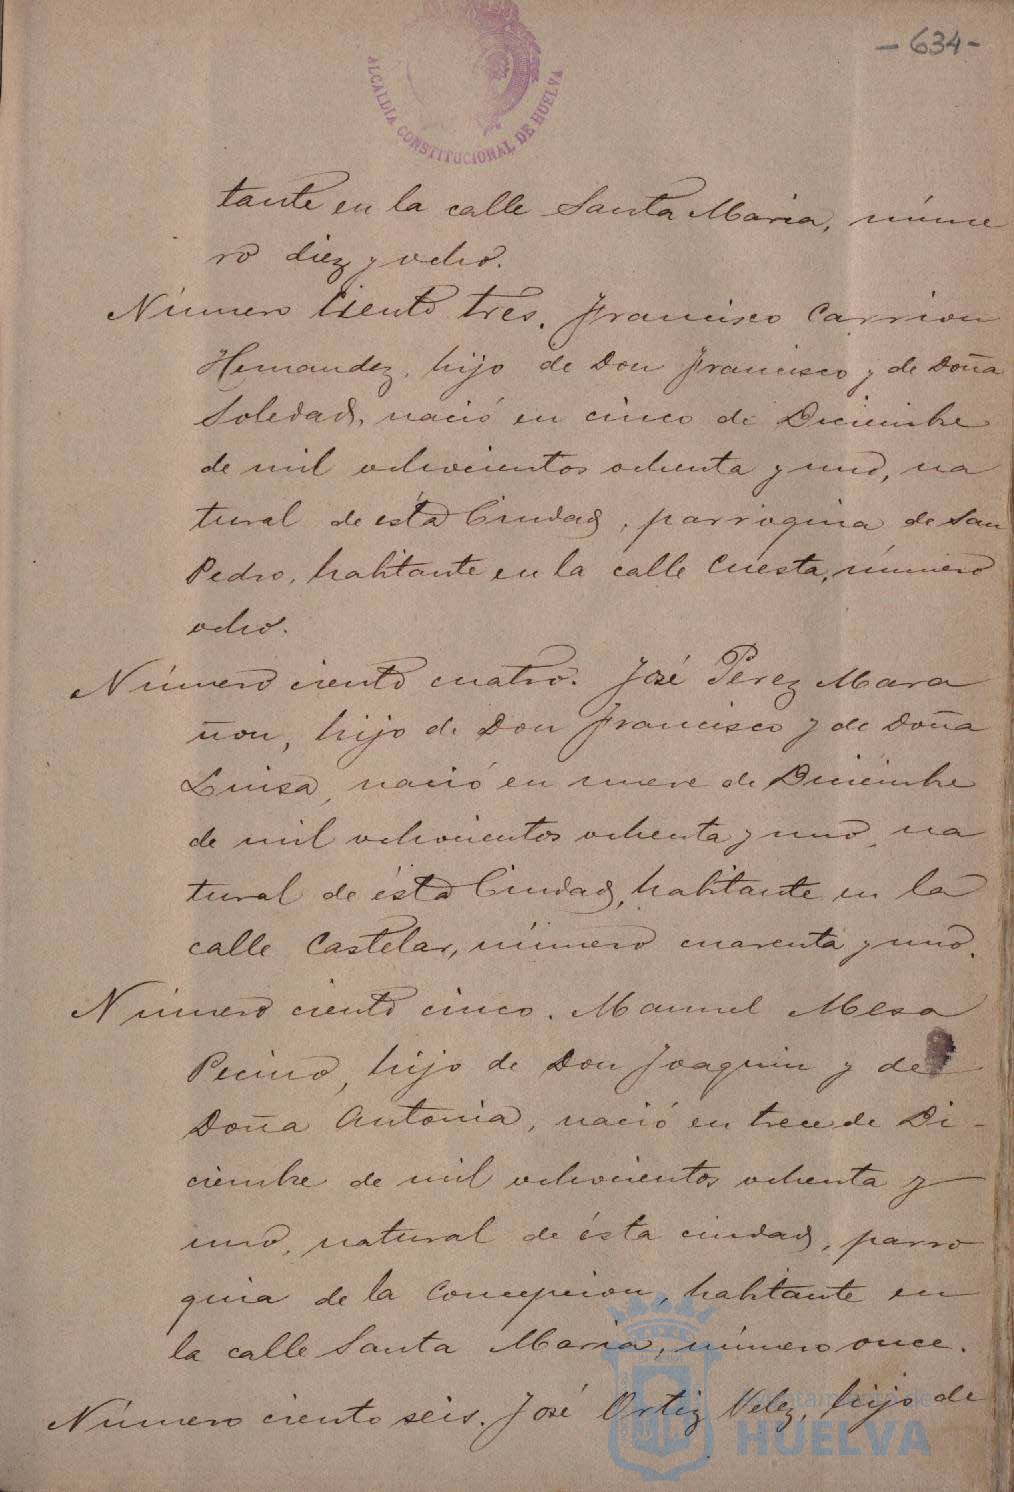 - 634 -
ALCALDIA CONSTITUCIONAL DE HUELVA
tante en la calle Santa Maria, núme
ro diez y ocho.
Número Ciento tres. Francisco Carrion
Hernandez, hijo de Don Francisco y de Doña
Soledad, nació en cinco de Diciembre
de mil ochocientos ochenta y uno, na
tural de ésta Ciudad, parroquia de San
Pedro, habitante en la calle Cuesta, número
ocho.
Número ciento cuatro. José Pérez Mara
ñon, hijo de Don Francisco y de Doña
Luisa, nació en nueve de Diciembre
de mil ochocientos ochenta y uno, na
tural de ésta Ciudad, habitante en la
calle Castelar, número cuarenta y uno.
Número ciento cinco. Manuel Mesa
Pecino, hijo de Don Joaquin y de
Doña Antonia, nació en trece de Di-
ciembre de mil ochocientos ochenta y
uno, natural de ésta ciudad, parro
quia de la Concepcion, habitante en
la calle Santa Maria, número once.
Número ciento seis. José Ortiz Velez, hijo de
Ayuntamiento de
HUELVA